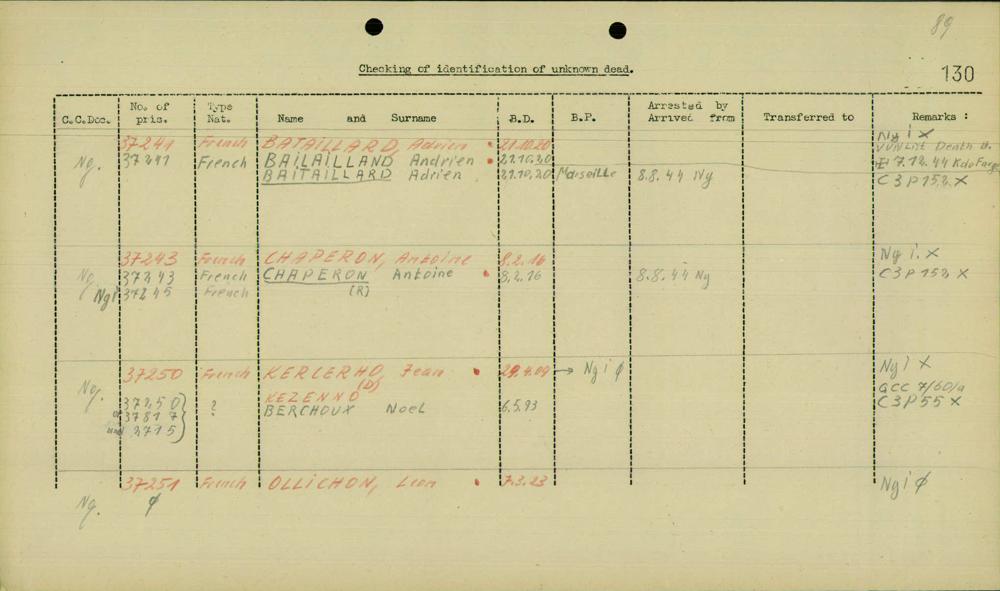 89
Checking of identification of unknown dead.
130
C.C.Doc. No. of pris. Type Nat. Name and Surname B.D. B.P. Arrested by Arrived from Transferred to Remarks :
37241 French BATAILLARD, Adrien 21.10.20 Ng i X
Ng. 37241 French BAILAILLAND Andrien 21.10.20 VVN List Death
BAITAILLARD Adrien 21.10.20 Marseille 8.8.44 Ng 7.12.44 Kdo Farge
C3P152 X
37243 French CHAPERON, Antoine 8.2.16 Ng i. X
Ng. 37243 French CHAPERON Antoine 8.2.16 8.8.44 Ng C3P152 X
Ngi 37245 French (R)
37250 French KERLERHO, Jean 29.4.09 → Ng i ∅ Ng i X
Ng. (D) GCC 7/60/a
KEZENNO
37250) ? BERCHOUX Noel 6.5.93 C3P55 X
or 37817
und 2715)
37251 French OLLICHON, Leon 7.3.23 Ng i ∅
Ng. ∅